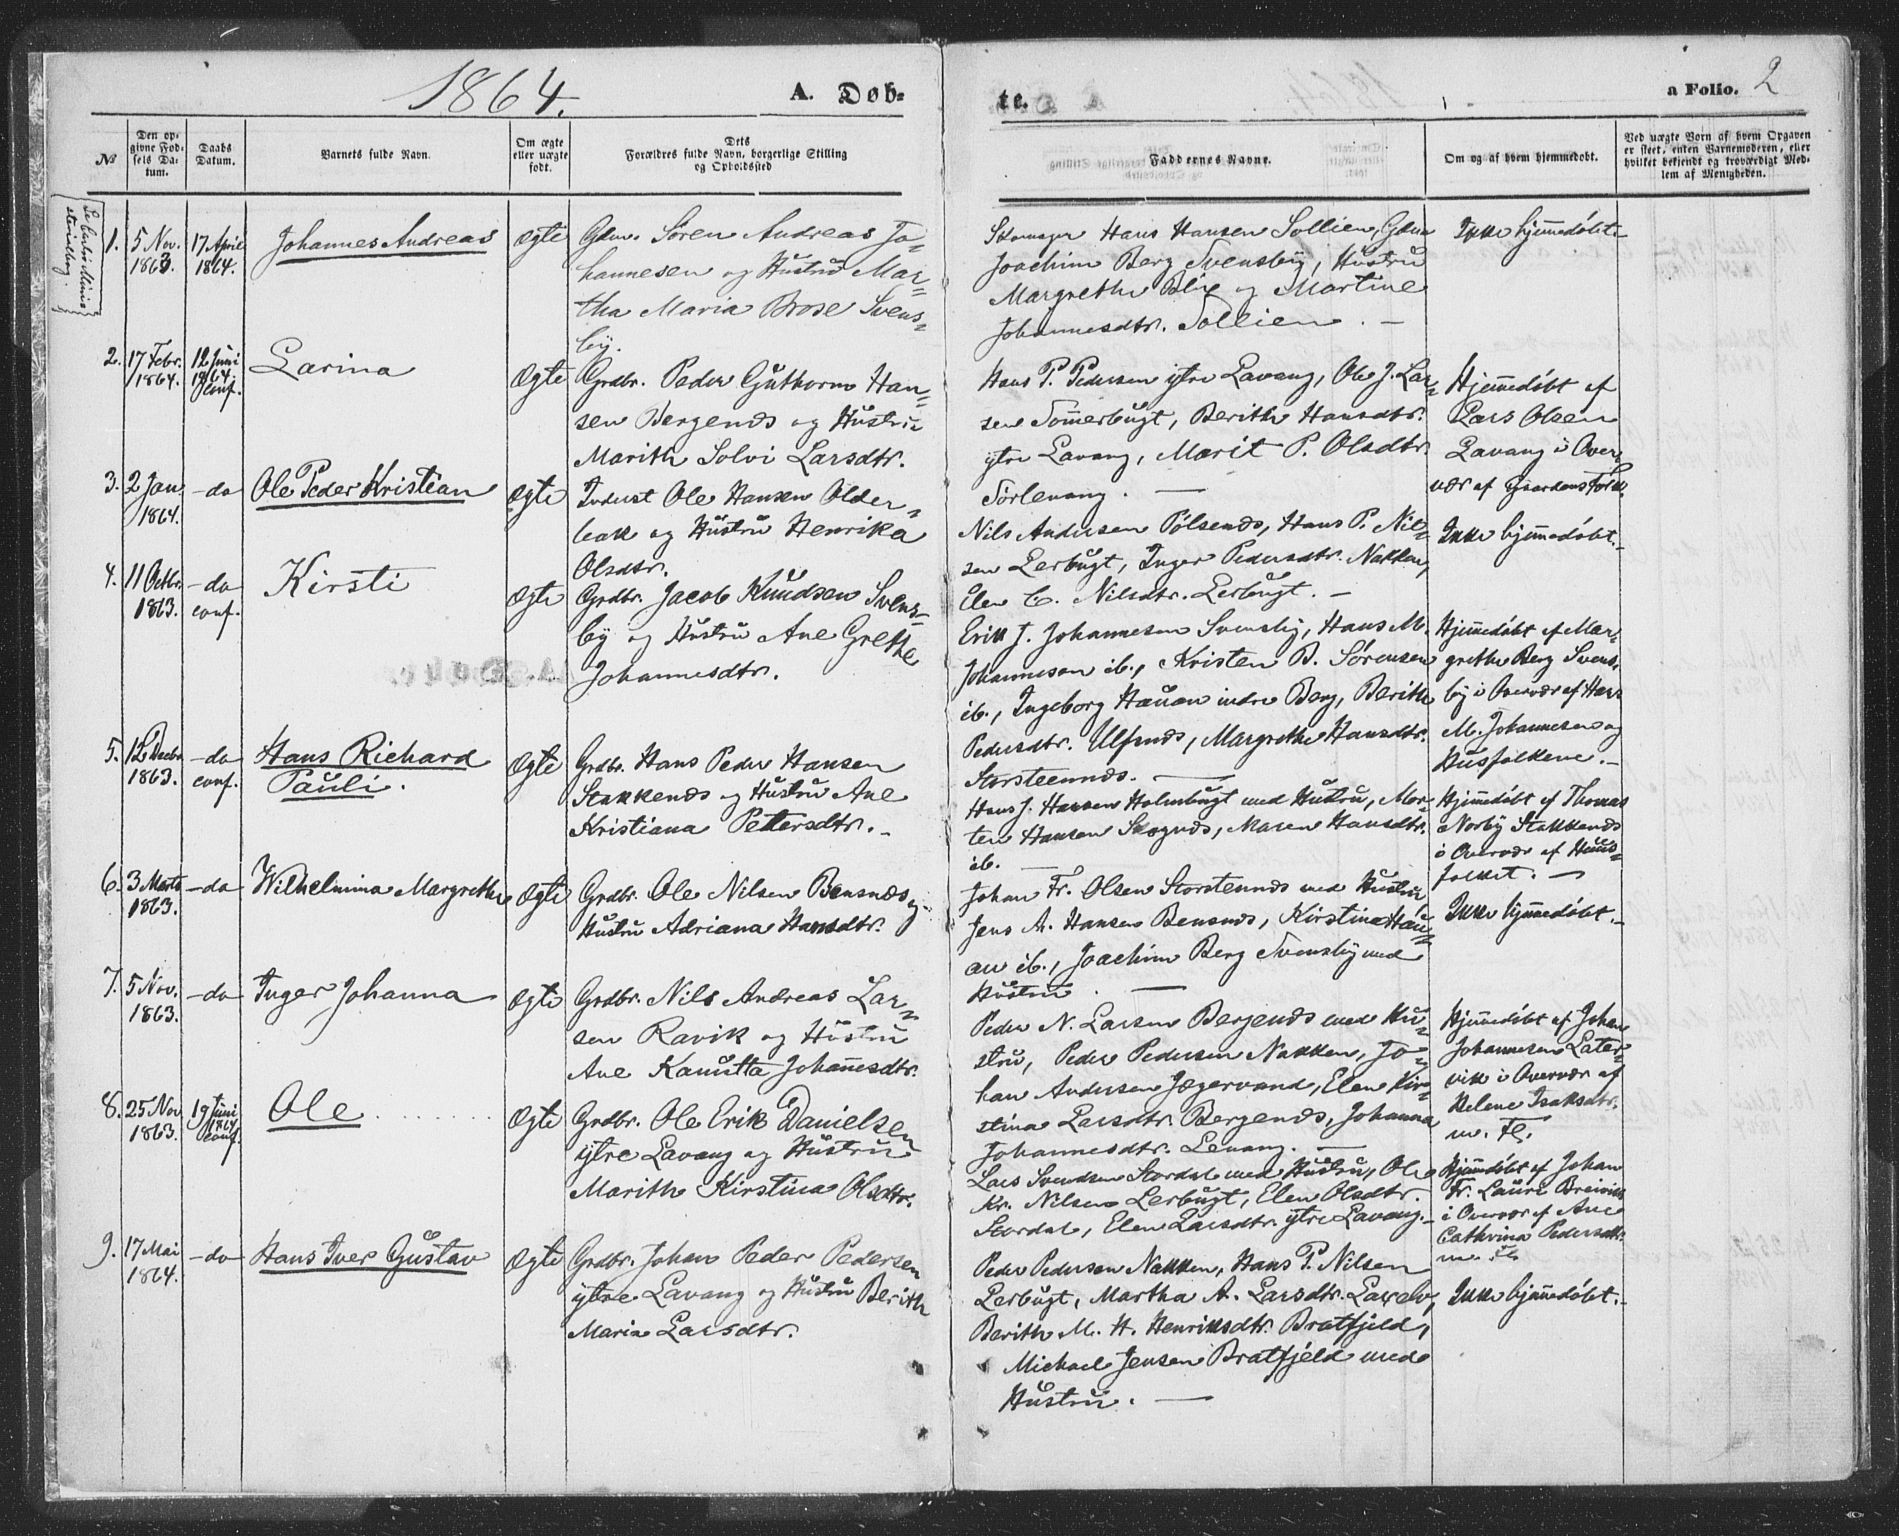 1864.
A. Døb=
te.
a Folio. 2
№
Den op-
givne Fød-
sels Da-
tum.
Daabs
Datum.
Barnets fulde Navn.
Om ægte
eller uægte
født.
Dets
Forældres fulde Navn, borgerlige Stilling
og Opholdssted
Faddernes Navne.
Om og af hvem hjemmedøbt.
Ved uægte Børn af hvem Opgaven
er skeet, enten Barnemoderen, eller
hvilket bekjendt og troværdigt Med-
lem af Menigheden.
1. 5 Nov.
1863.
17 April
1864.
Johannes Andreas
Ægte
Gdm. Sören Andreas Jo-
hannesen og Hustru Mar-
tha Maria Brose Svens-
by.
Hans Hansen Sollien, Gdm
Joachim Berg Svensby, Hustru
Margrethe Blix og Martine
Johannesdtr. Sollien. —
Ikke hjemmedøbt.
2. 17 Febr.
1864.
12 Juni
1864.
conf.
Larina
Ægte
Grdbr. Peder Guthorm Han-
sen Bergends og Hustru
Marith Solvi Larsdtr.
Hans P. Pedersen ytre Lavang, Ole J. Lar-
sen Sommerbugt, Berith Hansdtr.
ytre Lavang, Marit P. Olsdtr
Sörlenang. —
Hjemmedøbt af
Lars Olsen
Lavang i Over-
vær af Gaardens Folk.
3. 2 Jan.
1864.
- do
Ole Peder Kristian
Ægte
Inderst Ole Hansen Older-
bak og Hustru Henrika
Olsdtr.
Nils Andersen Pölsends, Hans P. Nil-
sen Lerbugt, Inger Pedersdtr. Nakken,
Elen C. Nilsdtr. Lerbugt. —
Ikke hjemmedøbt.
4. 11 Octbr.
1863.
- do
conf.
Kirsti
Ægte
Grdbr. Jacob Knudsen Svens-
by og Hustru Ane Grethe
Johannesdtr.
Erik J. Johannesen Svensby, Hans M.
Johannesen ib., Kristen B. Sørensen
ib., Ingeborg Hauan indre Berg, Berith
Pedersdtr. Ulfsnds, Margrethe Hansdtr.
Storsteennds. —
Hjemmedøbt af Mar-
grethe Berg Svens-
by i Overvær af Hans
M. Johannesen og
Husfolkene. —
5. 12 Decbr
1863.
- do
conf.
Hans Richard
Pauli.
Ægte
Grdbr. Hans Peder Hansen
Stakkends og Hustru Ane
Kristiana Pettersdtr. -
Hans J. Hansen Holmbugt med Hustru, Mor-
ten Hansen Skognds, Maren Hansdtr.
ib. —
Hjemmedøbt af Thomas
Norby Stakkends
i Overvær af Huus-
folket. —
6. 3 Marts
1863.
- do
Wilhelmina Margrethe
Ægte
Grdbr. Ole Nilsen Bensnds og
Hustru Adriana Hansdtr.
Johan Fr. Olsen Storstennds med Hustru,
Jens A. Hansen Bensnds, Kirstina Hau-
an ib., Joachim Berg Svensby med
Hustru. —
Ikke hjemmedøbt. -
7. 5 Nov.
1863.
- do
Inger Johanna
Ægte
Grdbr. Nils Andreas Lar-
sen Ravik og Hustru
Ane Kanutta Johannesdtr.
Peder N. Larsen Bergends med Hu-
stru, Peder Pedersen Nakken, Jo-
han Andersen Jægervand, Elen Kir-
stina Larsdtr. Bergends, Johanna
Johannesdtr. Levang. —
Hjemmedøbt af Johan
Johannesen Later-
vik i Overvær af
Helene Isaksdtr.
m. Fl.
8. 25 Nov
1863.
19 Juni
1864
conf.
Ole
Ægte
Grdbr. Ole Erik Danielsen
ytre Lavang og Hustru
Marith Kirstina Olsdtr.
Lars Svendsen Stordal med Hustru, Ole
Kr. Nilsen Lerbugt, Elen Olsdtr.
Stordal, Elen Larsdtr. ytre Lavang. -
Hjemmedøbt af Johan
Fr. Lauri Breivik
i Overvær af Ane
Cathrina Pedersdtr.
m. Fl.
9. 17 Mai
1864.
- do
Hans Iver Gustav
Ægte
Grdbr. Johan Peder Pedersen
ytre Lavang og Hustru Berith
Maria Larsdtr.
Peder Pedersen Nakken, Hans P. Nilsen
Lerbugt, Martha A. Larsdtr. Laxelv,
Berith M. H. Henriksdtr. Bratfjeld,
Michael Jensen Bratfjeld med
Hustru. —
Ikke hjemmedøbt. -